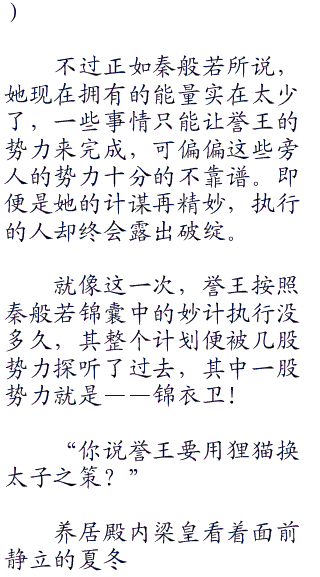 ）
不过正如秦般若所说，
她现在拥有的能量实在太少
了，一些事情只能让誉王的
势力来完成，可偏偏这些旁
人的势力十分的不靠谱。即
便是她的计谋再精妙，执行
的人却终会露出破绽。
就像这一次，誉王按照
秦般若锦囊中的妙计执行没
多久，其整个计划便被几股
势力探听了过去，其中一股
势力就是——锦衣卫！
“你说誉王要用狸猫换
太子之策？”
养居殿内梁皇看着面前
静立的夏冬